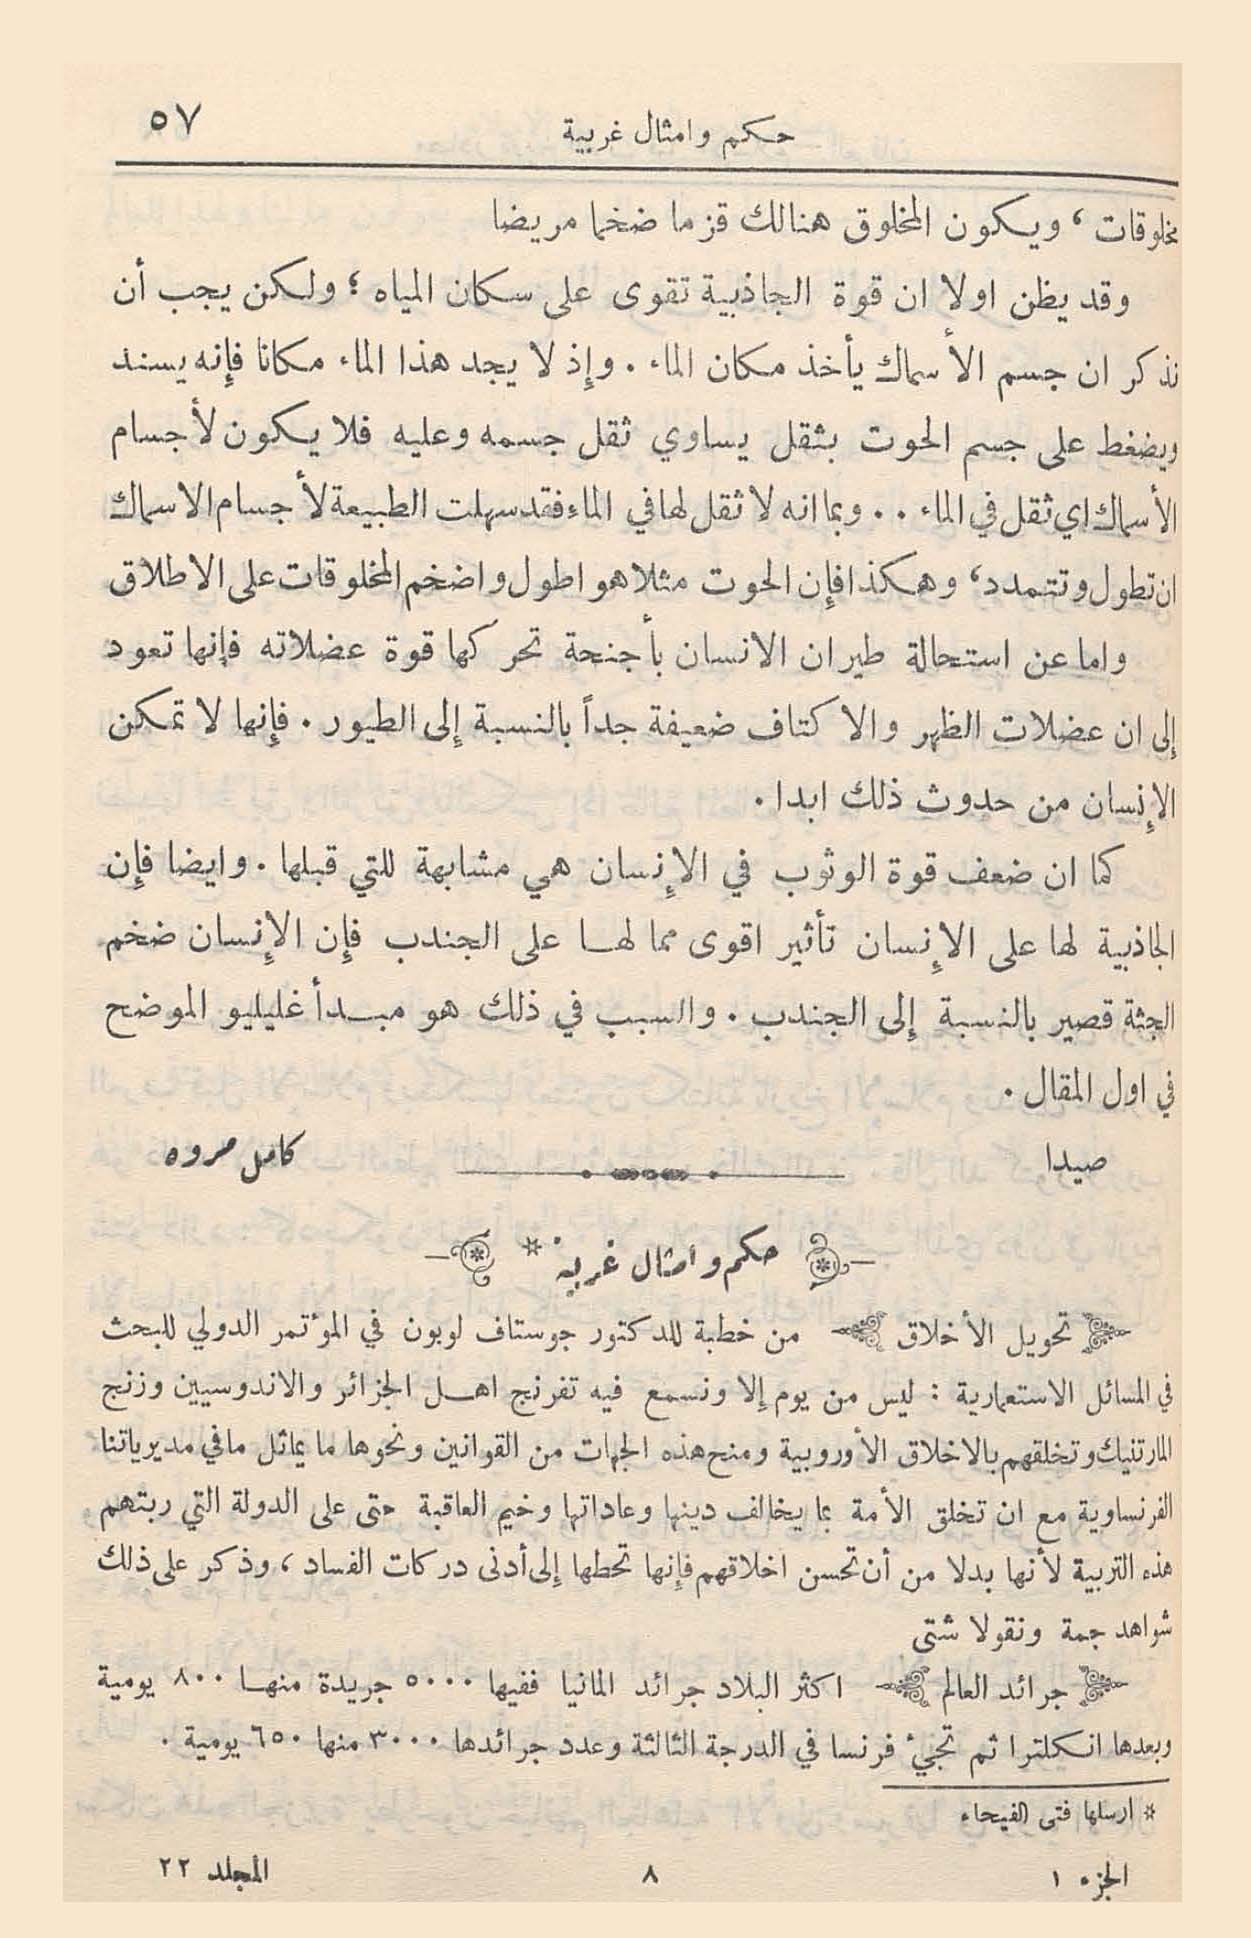 حكم وامثال غربية
٥٧
مخلوقات ، ويكون المخلوق هنالك قزما ضخما مريضا
وقد يظن اولا ان قوة الجاذبية تقوى على سكان المياه ؛ ولكن يجب أن
نذكر ان جسم الأسماك يأخذ مكان الماء . وإذ لا يجد هذا الماء مكانا فإنه يسند
ويضغط على جسم الحوت بثقل يساوي ثقل جسمه وعليه فلا يكون لأجسام
الأسماك اي ثقل في الماء . . وبما انه لا ثقل لها في الماء فقد سهلت الطبيعة لأجسام الاسماك
ان تطول وتتمدد ، وهكذا فإن الحوت مثلا هو اطول واضخم المخلوقات على الاطلاق
واما عن استحالة طيران الانسان بأجنحة تحركها قوة عضلاته فإنها تعود
إلى ان عضلات الظهر والاكتاف ضعيفة جداً بالنسبة إلى الطيور . فإنها لا تمكن
الإنسان من حدوث ذلك ابدا .
كما ان ضعف قوة الوثوب في الإنسان هي مشابهة للتي قبلها . وايضا فإن
الجاذبية لها على الإنسان تأثير اقوى مما لها على الجندب فإن الإنسان ضخم
الجثة قصير بالنسبة إلى الجندب . والسبب في ذلك هو مبدأ غليليو الموضح
في اول المقال .
صيدا
كامل مروه
حكم وامثال غربية *
تحويل الأخلاق من خطبة للدكتور جوستاف لوبون في المؤتمر الدولي للبحث
في المسائل الاستعمارية : ليس من يوم إلا ونسمع فيه تفرنج اهل الجزائر والاندوسيين وزنج
المارتنيك وتخلقهم بالاخلاق الأوروبية ومنح هذه الجهات من القوانين ونحوها ما يماثل ما في مديرياتنا
الفرنساوية مع ان تخلق الأمة بما يخالف دينها وعاداتها وخيم العاقبة حتى على الدولة التي ربتهم
هذه التربية لأنها بدلا من أن تحسن اخلاقهم فإنها تحطها إلى أدنى دركات الفساد ، وذكر على ذلك
شواهد جمة ونقولا شتى
جرائد العالم اكثر البلاد جرائد المانيا ففيها ٥٠٠٠ جريدة منها ٨٠٠ يومية
وبعدها انكلترا ثم تجيء فرنسا في الدرجة الثالثة وعدد جرائدها ٣٠٠٠ منها ٦٥٠ يومية .
* ارسلها فتى الفيحاء
الجزء ١
٨
المجلد ٢٢